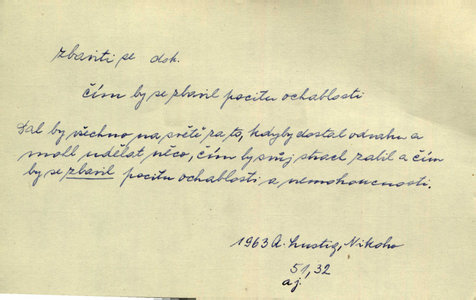 zbaviti se dok.
čím by se zbavil pocitu ochablosti
Dal by všechno na světě za to, kdyby dostal odvahu a
mohl udělat něco, čím by svůj strach zabil a čím
by se zbavil pocitu ochablosti a nemohoucnosti.
1963 A. Lustig, Nikoho
51,32
aj